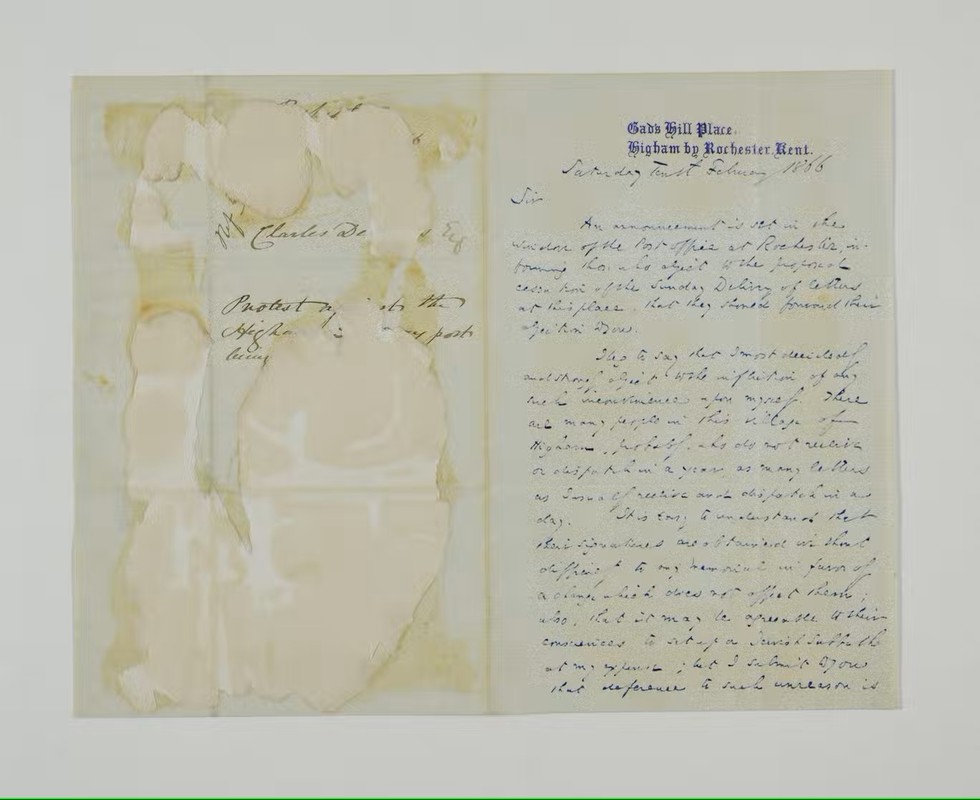 Charles De
Esq
Protest ag the
Higham post
being
Gad's Hill Place.
Higham by Rochester, Kent.
Saturday Tenth February 1866
Sir
An announcement is set in the
window of the Post office at Rochester, in-
forming those who object to the proposed
cessation of the Sunday Delivery of letters
at this place, that they should forward their
objection to you.
I beg to say that I most decidedly
and strongly object to the infliction of any
such inconvenience upon myself. There
are many people in this village of
Higham, probably, who do not receive
or dispatch in a year, as many letters
as I usually receive and dispatch in a
day. It is easy to understand that
their signatures are obtained without
difficulty to any memorial in favor of
a change which does not affect them;
also, that it may be agreeable to their
consciences to set up a Jewish Sabbath
at my expense; but I submit to you
that deference to such unreason is